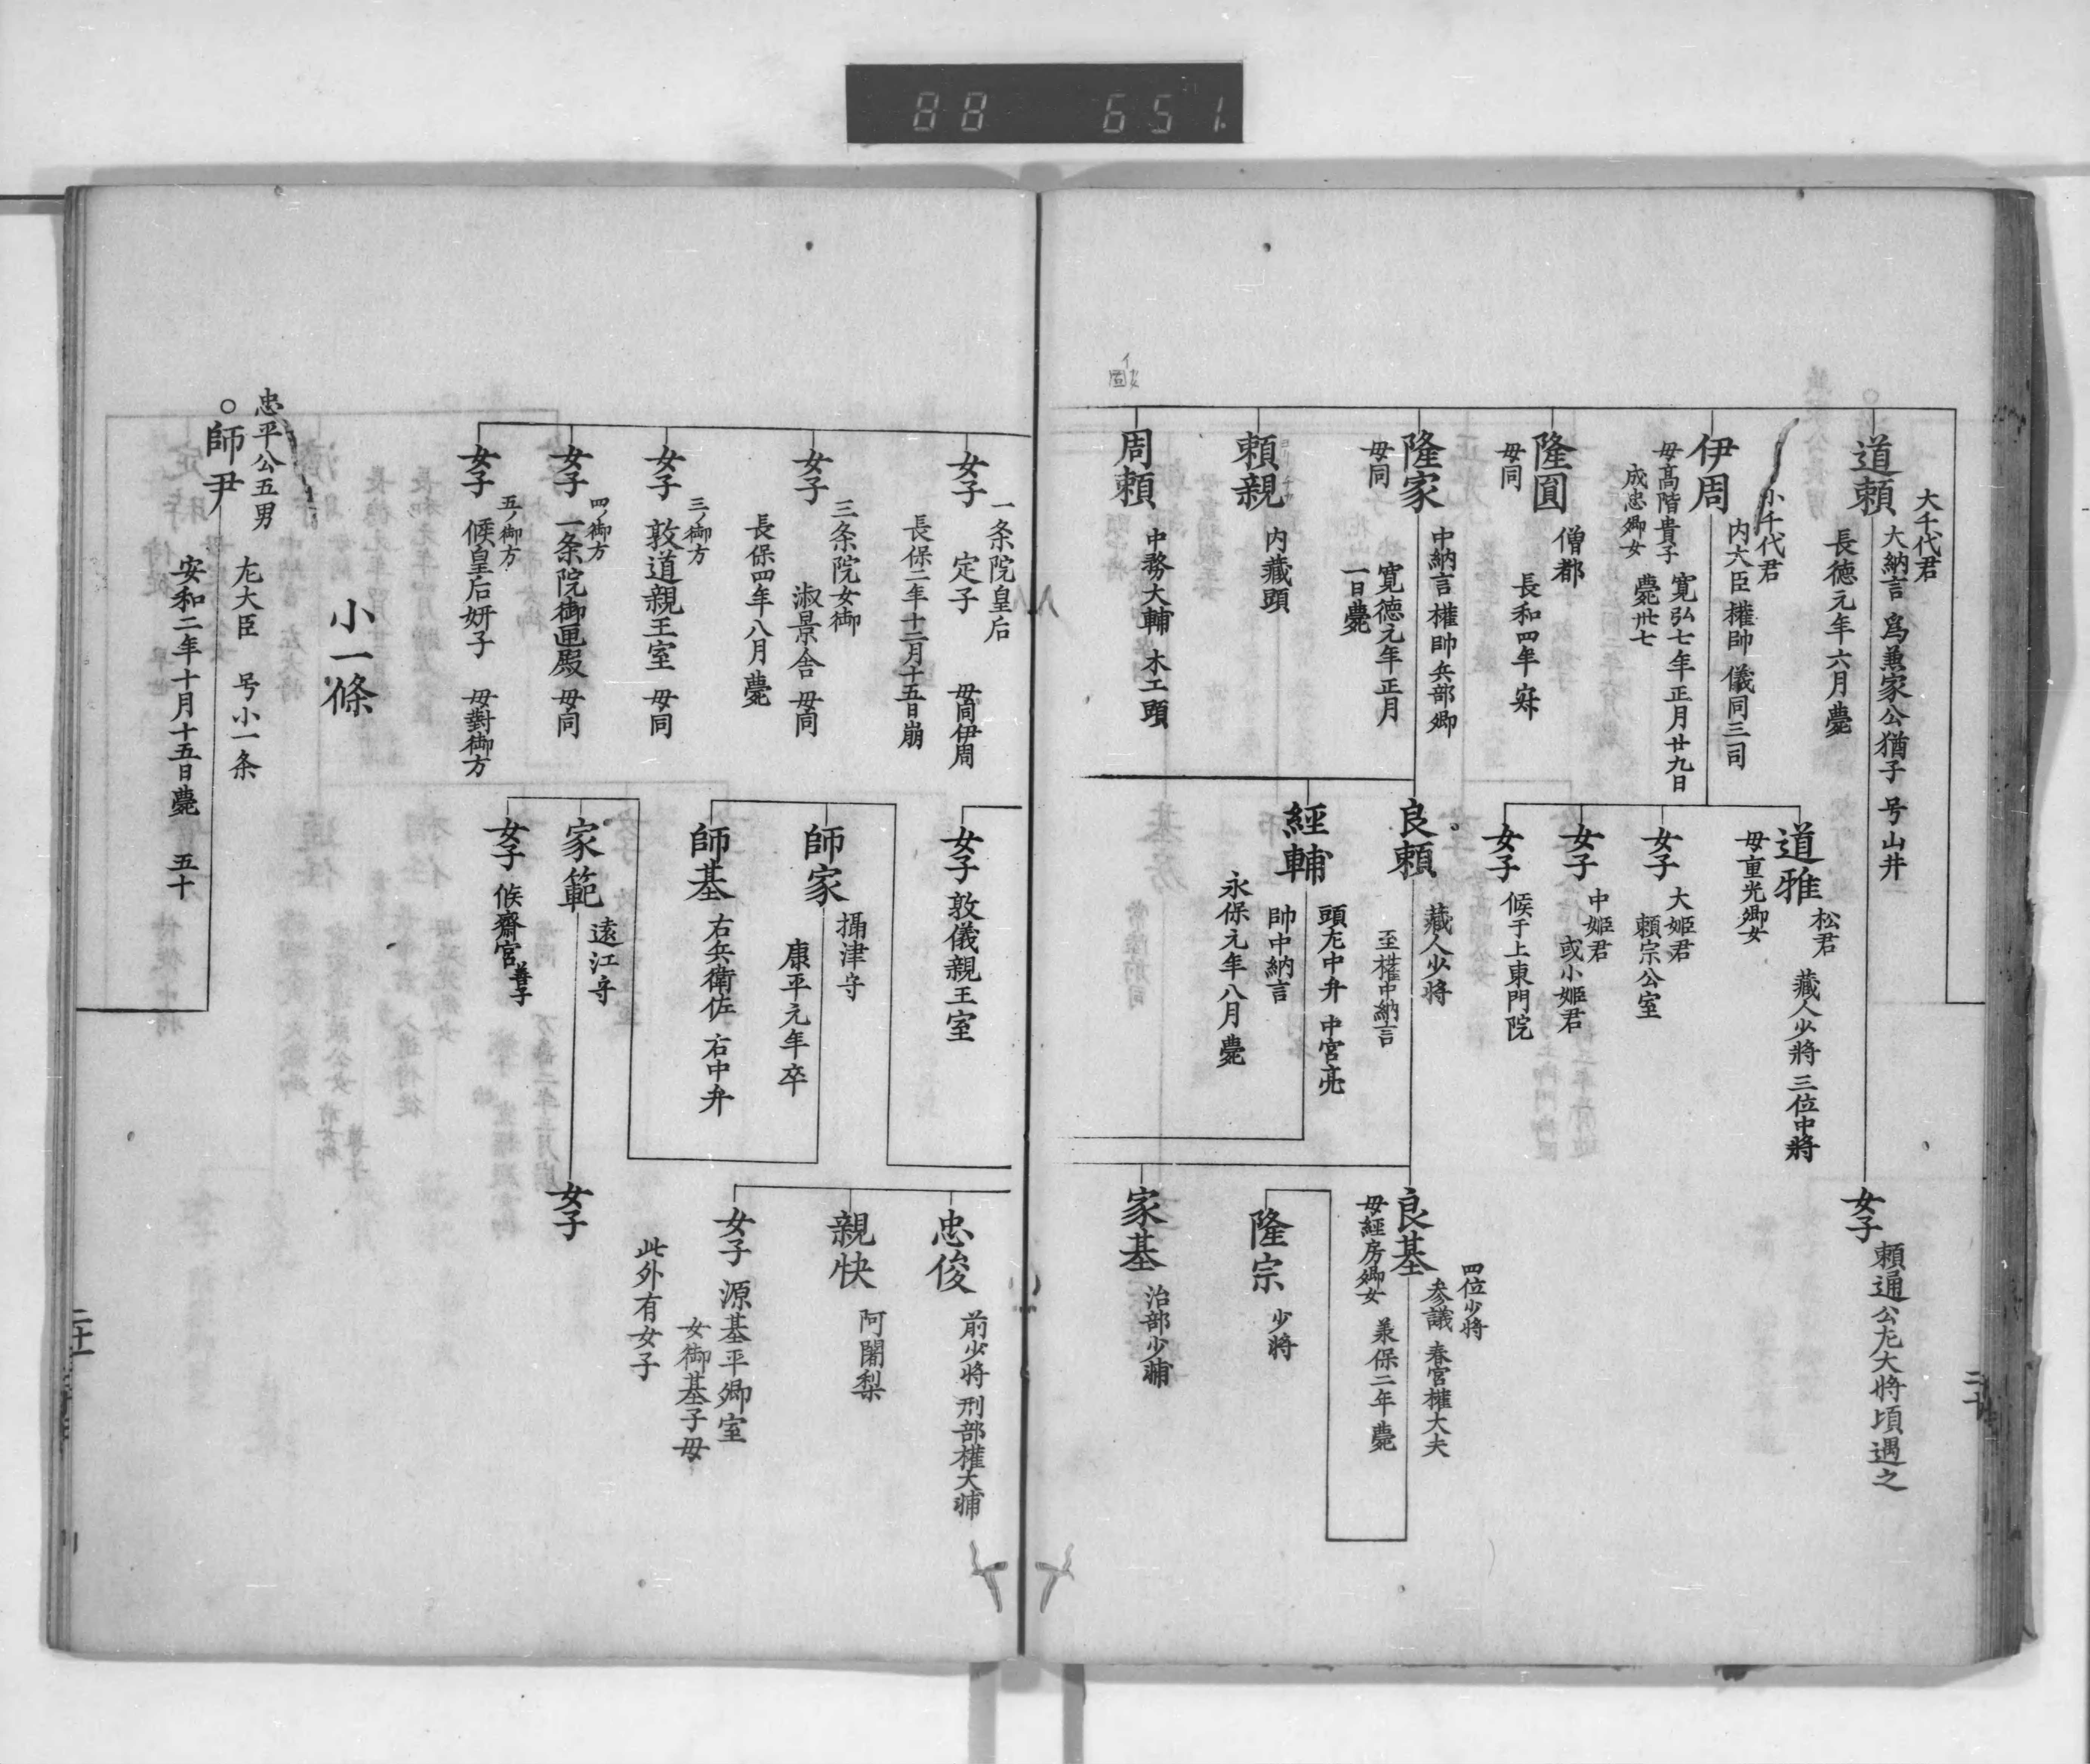 88 651
大千代君
道頼
大納言 爲兼家公猶子 号山井
長徳元年六月薨
小千代君
伊周
内大臣 權帥 儀同三司
母高階貴子
成忠卿女
寛弘七年正月廿九日
薨卅七
隆圓
母同
僧都
長和四年寂
隆家
母同
中納言 權帥 兵部卿
寛徳元年正月
一日薨
頼親
内藏頭
周頼
中務大輔 木工頭
道雅
松君
母重光卿女
藏人少將 三位中將
女子
大姫君
頼宗公室
女子
中姫君
或小姫君
女子
候于上東門院
良頼
藏人少將
至權中納言
經輔
頭左中弁 中宮亮
帥中納言
永保元年八月薨
女子
頼通公左大將頃遇之
良基
四位少將
参議 春宮權大夫
母經房卿女
承保二年薨
隆宗
少將
家基
治部少輔
二十
女子
一条院皇后
定子 母同伊周
長保二年十二月十五日崩
女子
三条院女御
淑景舎 母同
長保四年八月薨
女子
三ノ御方
敦道親王室 母同
女子
四ノ御方
一条院御匣殿 母同
女子
五ノ御方
候皇后妍子 母對御方
女子
敦儀親王室
師家
攝津守
康平元年卒
師基
右兵衛佐 右中弁
家範
遠江守
女子
候齋宮善子
忠俊
前少將 刑部權大輔
親快
阿闍梨
女子
源基平卿室
女御基子母
此外有女子
女子
小一條
忠平公五男
○師尹
左大臣 号小一条
安和二年十月十五日薨 五十
二十一